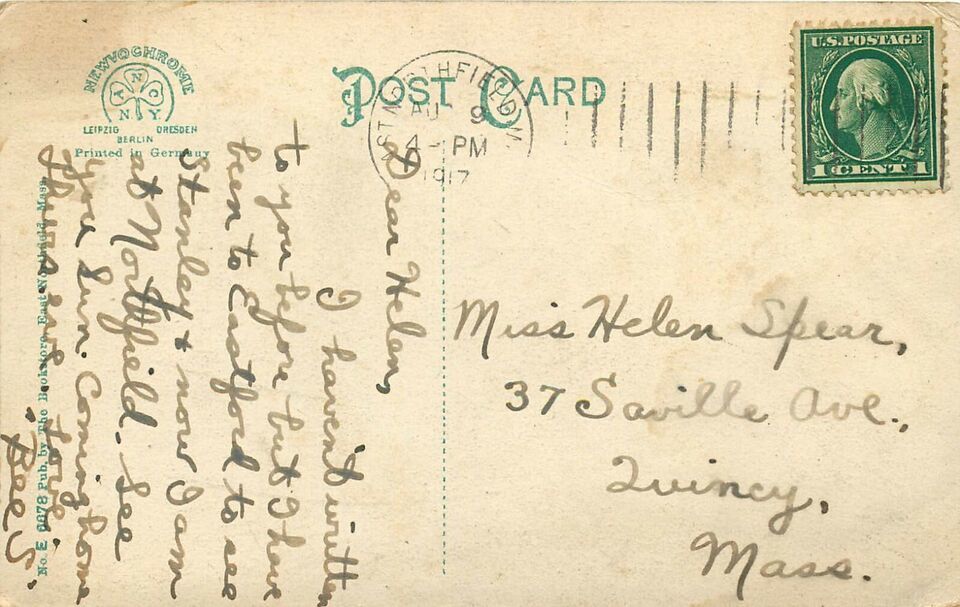 NEWVOCHROME
A N C N.Y.
LEIPZIG DRESDEN
BERLIN
Printed in Germany
POST CARD
AU 9
4 - PM
1917
U.S. POSTAGE
1 CENT 1
Dear Helen,
I havent written
to you before but I have
been to Eastford to see
Stanley & now I am
at Northfield. See
you Sun. Coming home
Thurs eve. Love,
"Bee S."
No. E 6678 Pub. by The Bookstore, East Northfield, Mass.
Miss Helen Spear,
37 Saville Ave.,
Quincy,
Mass.